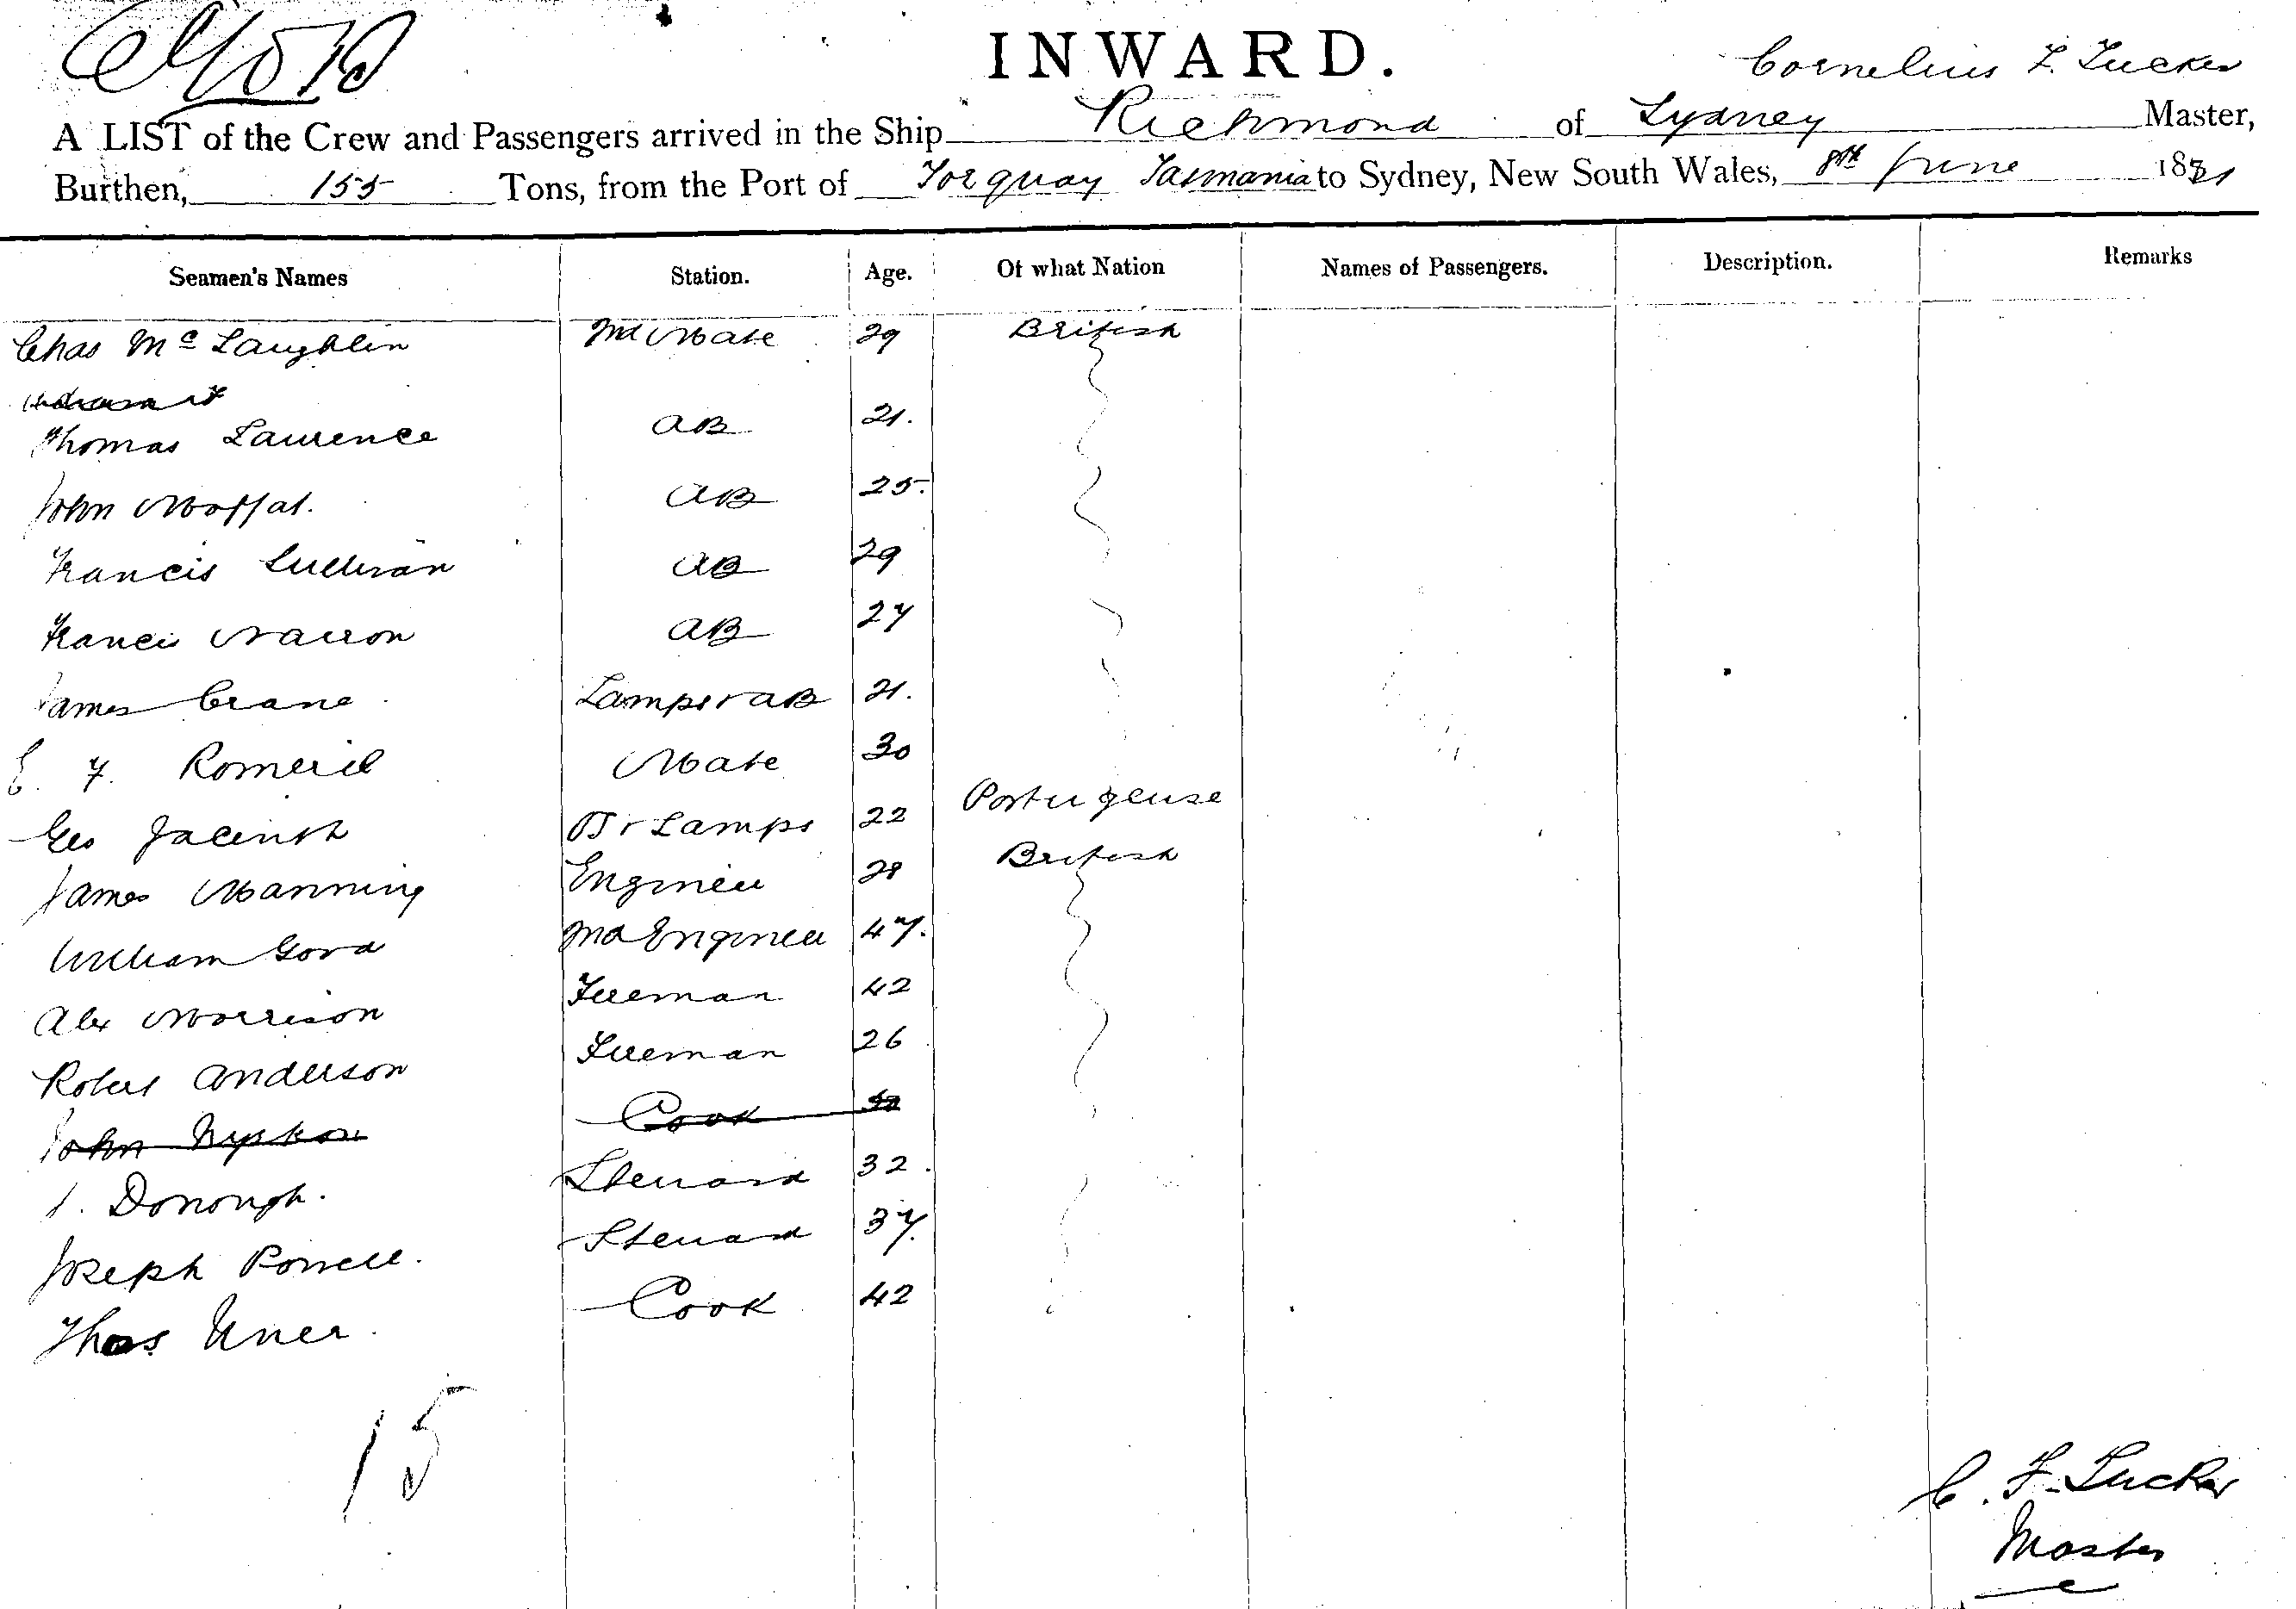 INWARD.
Cornelius F. Tucker
A LIST of the Crew and Passengers arrived in the Ship Richmond of Sydney Master,
Burthen, 155 Tons, from the Port of Torquay Tasmania to Sydney, New South Wales, 8th June 1881
Seamen's Names Station. Age. Of what Nation Names of Passengers. Description. Remarks
Chas McLaughlin 2nd Mate 29 British
Thomas Laurence AB 21.
John Moffat. AB 25.
Francis Sullivan AB 29
Francis AB 27
James Crane Lamps & AB 21.
E. F. Romeril Mate 30
Geo Jacinth & Lamps 22 Portugeuse
James Manning Engineer 28 British
William Gord 2nd Engineer 47.
Alex Morrison Fireman 42
Robert Anderson Fireman 26
John Cook
J. Donough. Steward 32.
Joseph Powell. Steward 37.
Thos Cook 42
15
C. F. Tucker
Master